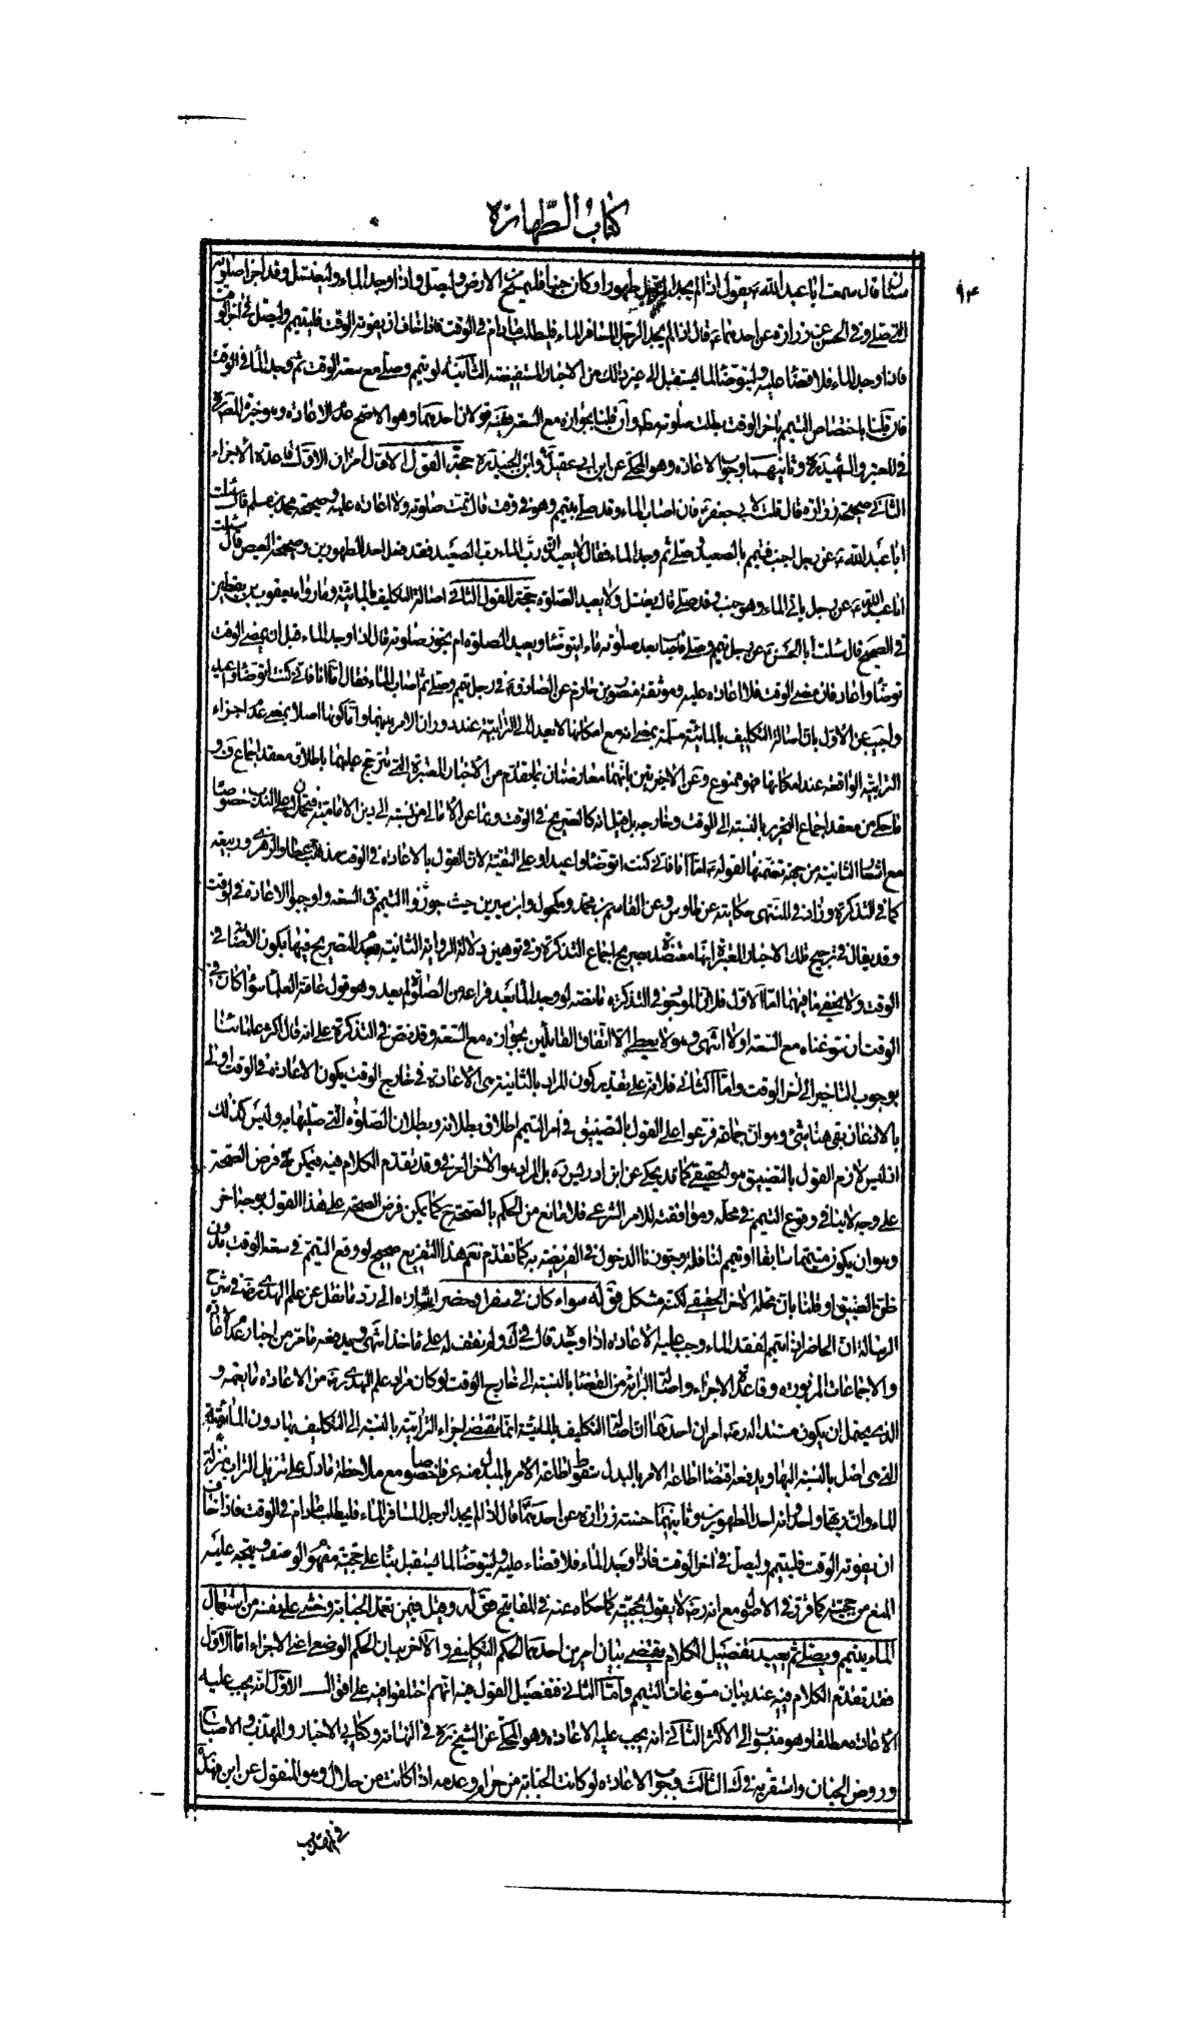 كتاب الطهارة
٩٤
سنان قال سمعت ابا عبد الله ع يقول اذا لم يجد الرجل طهورا وكان جنبا فليمسح من الارض وليصل واذا وجد الماء فليغتسل وقد اجزأ صلوته
التي صلى وفي الحسن عن زرارة عن احدهما ع قال اذا لم يجد الرجل المسافر الماء فليطلب مادام في الوقت فاذا خاف ان يفوته الوقت فليتيمم وليصل في اخر الوقت
فاذا وجد الماء فلا قضاء عليه وليتوضأ لما يستقبل الى غير ذلك من الاخبار المستفيضة الثانية لو تيمم وصلى مع سعة الوقت ثم وجد الماء في الوقت
فان قلنا باختصاص التيمم باخر الوقت بطلت صلوته مطلقا وان قلنا بجوازه مع السعة ففيه قولان احدهما وهو الاصح عدم الاعادة وهو خيرة المصنف
في المعتبر والشهيد ره وثانيهما وجوب الاعادة وهو المحكي عن ابن ابي عقيل وابن الجنيد ره حجة القول الاول امران الاول قاعدة الاجزاء
الثاني صحيحة زرارة قال قلت لابي جعفر ع فان اصاب الماء وقد صلى بتيمم وهو في وقت قال تمت صلوته ولا اعادة عليه وصحيحة محمد بن مسلم قال سئلت
ابا عبد الله ع عن رجل اجنب فتيمم بالصعيد وصلى ثم وجد الماء فقال لا يعيد ان رب الماء رب الصعيد فقد فعل احد الطهورين وصحيحة العيص قال سئلت
ابا عبد الله ع عن رجل ياتي الماء وهو جنب وقد صلى قال يغتسل ولا يعيد الصلوة حجة القول الثاني اصالة التكليف بالمائية وما رواه يعقوب بن يقطين
في الصحيح قال سئلت ابا الحسن ع عن رجل تيمم وصلى فاصاب بعد صلوته ماء ايتوضأ ويعيد الصلوة ام تجوز صلوته قال اذا وجد الماء قبل ان يمضي الوقت
توضأ واعاد فان مضى الوقت فلا اعادة عليه وموثقة منصور بن حازم عن الصادق ع في رجل تيمم وصلى ثم اصاب الماء فقال اما انا فاني كنت اتوضأ واعيد
واجيب عن الاول بان اصالة التكليف بالمائية مسلمة بمعنى انه مع امكانها لا يعدل الى الترابية عند دوران الامر بينهما واما كونها اصلا بمعنى عدم اجزاء
الترابية الواقعة عند امكانها فهو ممنوع وعن الاخيرتين بانهما معارضتان بما تقدم من الاخبار المعتبرة التي تترجح عليهما باطلاق معقد اجماع
ما حكي من معقد اجماع التحرير بالنسبة الى الوقت وخارجه بل قيل انه كالصريح في الوقت وبما عن الامالي من نسبته الى دين الامامية فتحملان على الندب خصوصا
مع اشعار الثانية من جهة تضمنها لقوله ع اما انا فاني كنت اتوضأ واعيد او على التقية لان القول بالاعادة في الوقت مذهب عطا والزهري وربيعة
كما في التذكرة وزاد في المنتهى حكايته عن طاوس وعن القاسم بن محمد ومكحول وابن سيرين حيث جوزوا التيمم في السعة واوجبوا الاعادة في الوقت
وقد يقال في ترجيح تلك الاخبار المعتبرة انها معتضدة بصريح اجماع التذكرة وفي توهين دلالة الرواية الثانية بعدم التصريح فيها بكون الاصابة في
الوقت ولا يخفى ما فيهما اما الاول فلان الموجود في التذكرة ما نصه لو وجد الماء بعد فراغه من الصلوة لم يعد وهو قول عامة العلماء سواء كان في
الوقت ان سوغناه مع السعة اولا انتهى وهو لا يعطي الا اتفاق القائلين بجوازه مع السعة وقد نص في التذكرة على انه قال اكثر علمائنا
بوجوب التاخير الى اخر الوقت واما الثاني فلانه على تقدير كون المراد بالثانية هي الاعادة في خارج الوقت يكون الاعادة في الوقت اولى
بالاذعان بقي هنا شيء وهو ان جماعة فرعوا على القول بالتضييق في امر التيمم اطلاق بطلانه وبطلان الصلوة التي صليها به وليس كذلك
اذ ليس لازم القول بالتضييق هو الحقيقي كما قد يحكى عن ابن ادريس ره بل المراد هو الاخر العرفي وقد تقدم الكلام فيه فيمكن فرض الصحة
على وجه لا ينافي وقوع التيمم في محله وموافقته للامر الشرعي فلا مانع من الحكم بالصحة ح كما يمكن فرض الصحة على هذا القول بوجه اخر
وهو ان يكون متيمما سابقا او تيمم لنافلة وجوزنا الدخول في الفريضة به كما تقدم نعم هذا التفريع صحيح لو وقع التيمم في سعة الوقت بدون
ظن الضيق او قلنا بان محله الاخر الحقيقي لكنه مشكل قوله سواء كان في سفر او حضر اشارة الى رد ما نقل عن علم الهدى رض في شرح
الرسالة ان الحاضر اذا تيمم لفقد الماء وجب عليه الاعادة اذا وجده قال في ك ولم نقف له على ماخذ انتهى ويدفعه ما مر من اخبار عدم الاعادة
والاجماعات المزبورة وقاعدة الاجزاء واصالة البراءة من القضاء بالنسبة الى خارج الوقت لو كان مراد علم الهدى ره من الاعادة ما يعمه و
الذي يحتمل ان يكون مستندا له رضه امران احدهما ان اصالة التكليف بالمائية انما يقتضي اجزاء الترابية بالنسبة الى التكليف بها دون المائية
التي هي اصل بالنسبة اليها ويدفعه اقتضاء اطاعة الامر بالبدل سقوط اطاعة الامر بالمبدل منه عرفا خصوصا مع ملاحظة ما دل على تنزيل التراب منزلة
الماء وان ربهما واحد وانه احد الطهورين وثانيهما حسنة زرارة عن احدهما قال اذا لم يجد الرجل المسافر الماء فليطلب مادام في الوقت فاذا خاف
ان يفوته الوقت فليتيمم وليصل في اخر الوقت فاذا وجد الماء فلا قضاء عليه وليتوضأ لما يستقبل بناء على حجية مفهوم الوصف ويتجه عليه
المنع من حجيته كما قرر في الاصول مع انه رضه لا يقول بحجيته كما حكاه عنه في المفاتيح قوله وقيل فيمن تعمد الجنابة وخشي على نفسه من استعمال
الماء يتيمم ويصلي ثم يعيد تفصيل الكلام يقتضي بيان امرين احدهما الحكم التكليفي والاخر بيان الحكم الوضعي اعني الاجزاء اما الاول
فقد تقدم الكلام فيه عند بيان مسوغات التيمم واما الثاني فتفصيل القول فيه انهم اختلفوا فيه على اقوال الاول انه لا يجب عليه
الاعادة مطلقا وهو منسوب الى الاكثر الثاني انه يجب عليه الاعادة وهو المحكي عن الشيخ ره في النهاية وكتابي الاخبار والمهذب والاصباح
وروض الجنان واستقربه في ك الثالث وجوب الاعادة لو كانت الجنابة من حرام وعدمه اذا كانت من حلال وهو المنقول عن ابن فهد ره
في المقتصر